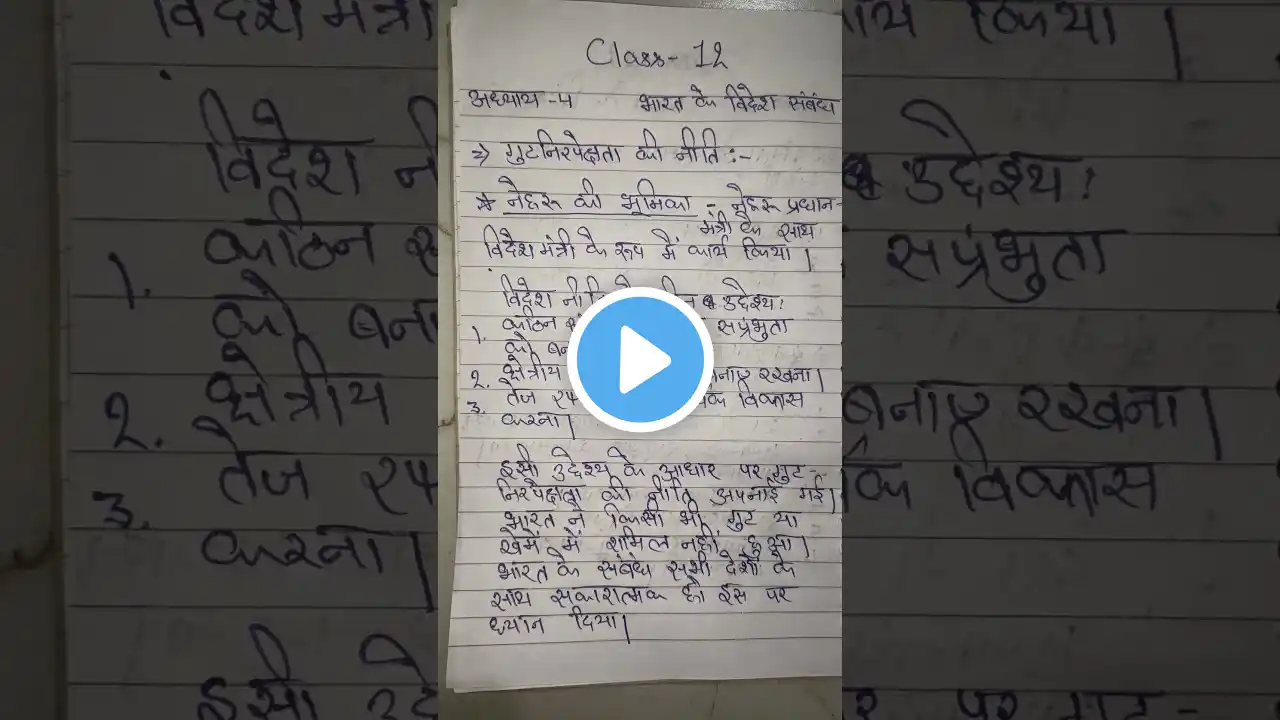 Class- 12
अध्याय -4 भारत के विदेश संबंध
⇒ गुटनिरपेक्षता की नीति :-
* नेहरू की भूमिका - नेहरू प्रधान-
मंत्री के साथ
विदेश मंत्री के रूप में कार्य किया |
विदेश नीति उद्देश्य:
1. कठिन संप्रभुता
को
2. क्षेत्रीय बनाए रखना |
3. तेज विकास
करना |
इसी उद्देश्य के आधार पर गुट-
निरपेक्षता की नीति अपनाई गई |
भारत ने किसी भी गुट या
खेमें में शमिल नहीं हुआ |
भारत के संबंध सभी देशों के
साथ सकारात्मक हो इस पर
ध्यान दिया |